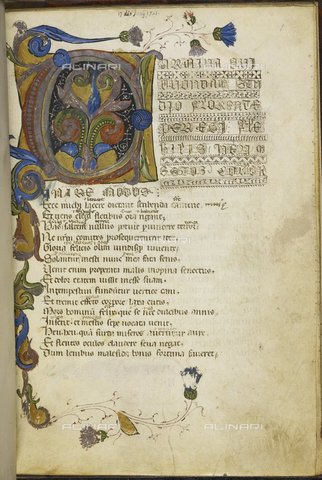 CARMINA QUI
QUONDAM STU
DIO FLORENTE
PEREGI FLE
BILIS HEU M
ESTOS COGOR
INIRE MODOS
Ecce michi lacere dictant scribenda camene
Et ueris elegi fletibus ora rigant
Has saltem nullus potuit peruincere terror
Ne nrm comites prosequerentur iter
Gloria felicis olim uiridisque iuuente
Solantur mesti nunc mea fata senis
Venit enim properata malis inopina senectus
Et dolor etatem iussit inesse suam
Intempestiui funduntur uertice cani
Et tremit effeto corpore laxa cutis
Mors hominum felix que se nec dulcibus annis
Inserit et mestis sepe uocata uenit
Heu heu qua surda miseros auertitur aure
Et flentes oculos claudere seua negat
Dum leuibus malefida bonis fortuna faueret
ALINARI
ALINARI
ALINARI
ALINARI